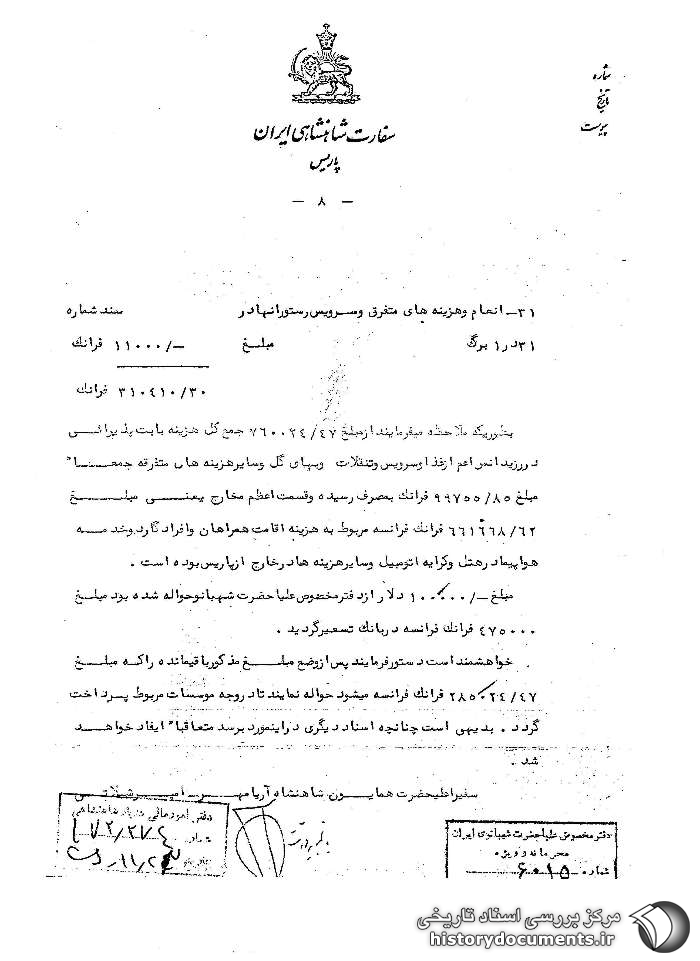 شماره
تاریخ
پیوست
سفارت شاهنشاهی ایران
پاریس
- ۸ -
۳۱- انعام وهزینه های متفرق وسرویس رستورانهادر سند شماره
۳۱در۱ برگ مبلغ ۱۱۰۰۰/- فرانك
۳۱۰٤۱۰/۳۰ فرانك
بطوریکه ملاحظه میفرمایند ازمبلغ ۷٦۰۰۲٤/٤۷ جمع کل هزینه بابت پذیرائی
درر زیدانس اعم ازغذا وسرویس وتنقلات وبهای گل وسایرهزینه های متفرقه جمعاً
مبلغ ۹۹۷۵۵/۸۵ فرانك بمصرف رسیده وقسمت اعظم مخارج یعنی مبلغ
٦٦۱٦٦۸/٦۲ فرانك فرانسه مربوط به هزینه اقامت همراهان وافراد گارد وخدمه
هواپیمادرهتل وکرایه اتومبیل وسایرهزینه هادرخارج ازپاریس بوده است .
مبلغ -/۱۰۰۰۰۰ دلار ازدفترمخصوص علیاحضرت شهبانوحواله شده بود مبلغ
٤۷۵۰۰۰ فرانك فرانسه دربانك تسعیرگردید .
خواهشمند است دستورفرمایند پس ازوضع مبلغ مذکورباقیمانده راکه مبلغ
۲۸۵۰۲٤/٤۷ فرانك فرانسه میشود حواله نمایند تادروجه موسسات مربوط پرداخت
گردد . بدیهی است چنانچه اسناد دیگری دراینمورد برسد متعاقباً ایفاد خواهد
شد .
سفیراعلیحضرت همایون شاهنشاه آریامهر - امیر
شماره
دفترمخصوص علیاحضرت شهبانوی ایران
محرمانه و ویژه
شماره ٦۰۱۵
مرکز بررسی اسناد تاریخی
historydocuments.ir